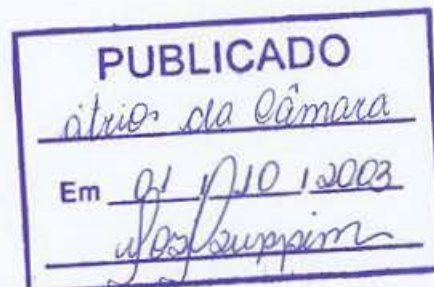 PUBLICADO
átrio da Câmara
Em 01 / 10 / 2003